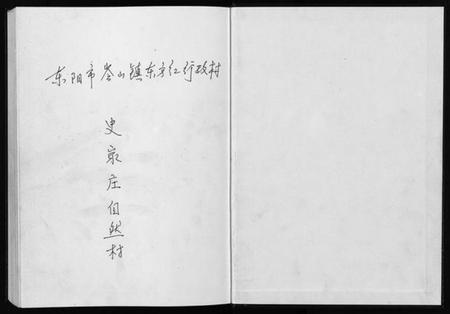 东阳市岑山镇东方红行政村
史家庄自然村